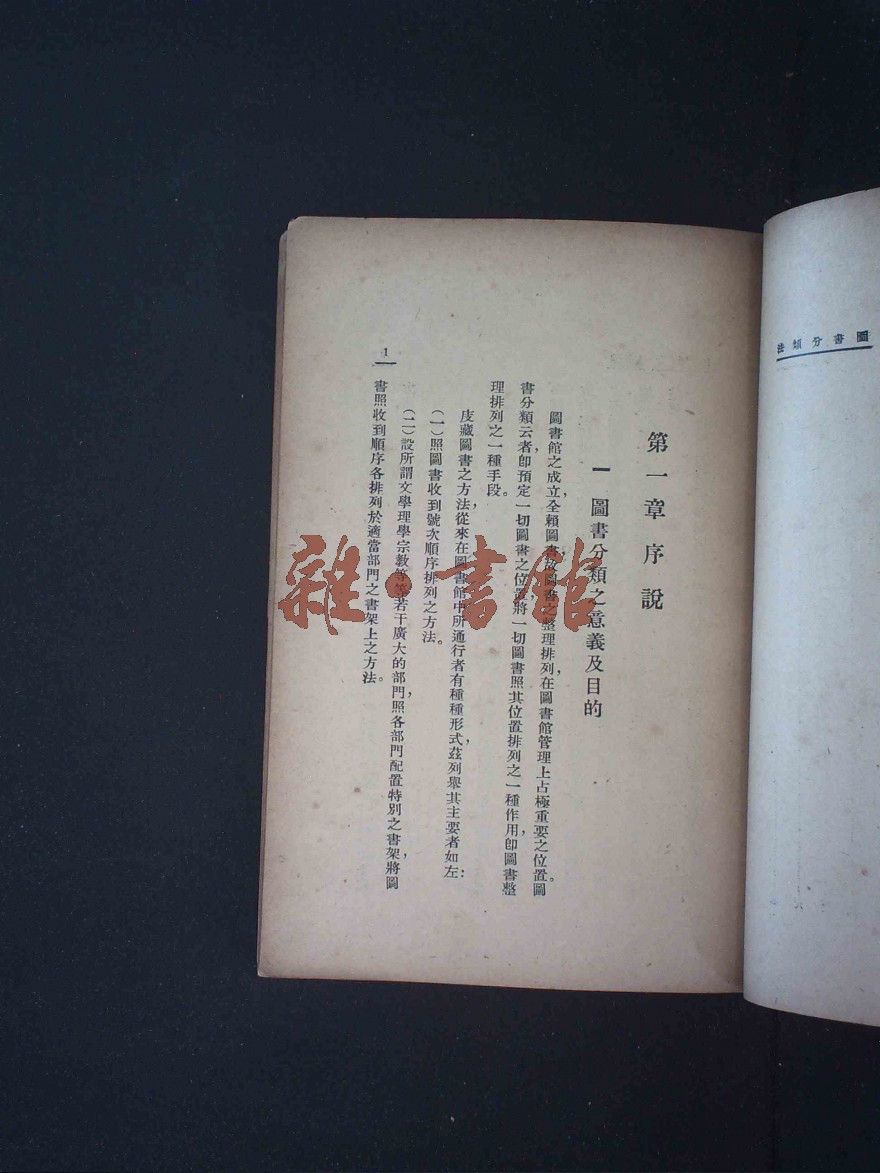 圖書分類法
第一章 序說
一 圖書分類之意義及目的
圖書館之成立，全賴圖書，故圖書之整理排列，在圖書館管理上占極重要之位置。圖
書分類云者，即預定一切圖書之位置，將一切圖書照其位置排列之一種作用，即圖書整
理排列之一種手段。
庋藏圖書之方法，從來在圖書館中所通行者，有種種形式，茲列舉其主要者如左：
（一）照圖書收到號次順序排列之方法。
（二）設所謂文學理學宗教等等若干廣大的部門，照各部門配置特別之書架，將圖
書照收到順序各排列於適當部門之書架上之方法。
1
雜·書館